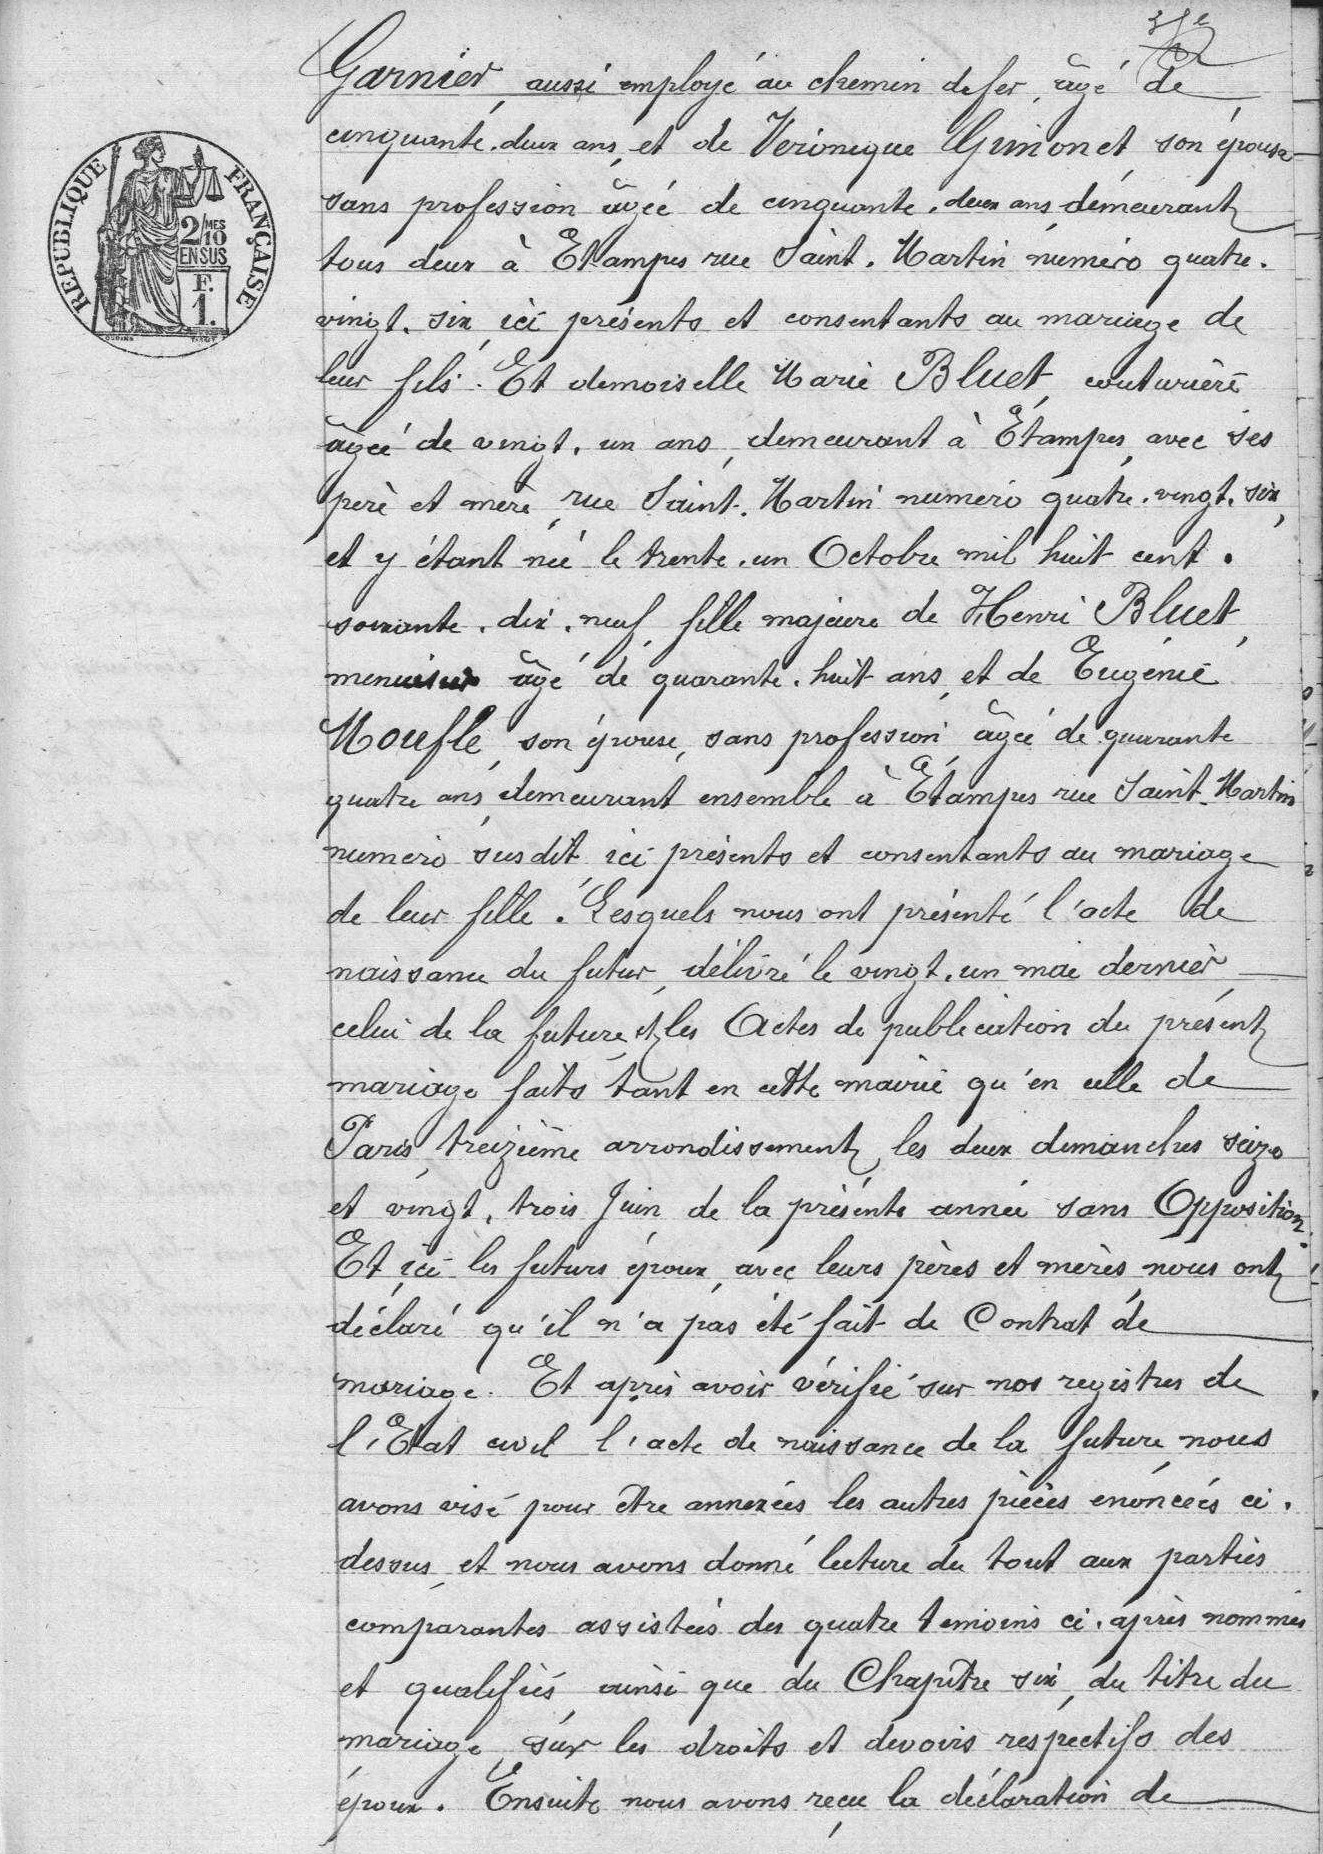 Garnier, aussi employé au chemin de fer, âgé de
cinquante-deux ans, et de Véronique Guinonet son épouse
sans profession âgée de cinquante-deux ans, demeurant
tous deux à Etampes rue Saint-Martin numéro quatre-
vingt-six, ici présents et consentants au mariage de
leur fils. Et demoiselle Marie Bluet, couturière
âgée de vingt-un ans, demeurant à Étampes, avec ses
père et mère, rue Saint-Martin numéro quatre-vingt-six,
et y étant née le trente-un Octobre mil huit cent-
soixante-dix-neuf, fille majeure de Henri Bluet,
menuisier âgé de quarante-huit ans, et de Eugénie
Moufle, son épouse, sans profession âgée de quarante
quatre ans, demeurant ensemble à Étampes rue Saint-Martin
numéro susdit, ici présents et consentants au mariage
de leur fille. Lesquels nous ont présenté l'acte de
naissance du futur, délivré le vingt-un mai dernier,
celui de la future, et les Actes de publication du présent
mariage faits tant en cette mairie qu'en celle de
Paris, treizième arrondissement, les deux dimanches seize
et vingt-trois Juin de la présente année sans Opposition.
Et ici les futurs époux, avec leurs pères et mères, nous ont
déclaré qu'il n'a pas été fait de Contrat de
mariage. Et après avoir vérifié sur nos registres de
l'Etat civil l'acte de naissance de la future, nous
avons visé pour être annexées les autres pièces énoncées ci-
dessus, et nous avons donné lecture du tout aux parties
comparantes assistées des quatre témoins ci-après nommés
et qualifiés, ainsi que du Chapitre six, du titre du
mariage, sur les droits et devoirs respectifs des
époux. Ensuite nous avons reçu la déclaration de
REPUBLIQUE FRANÇAISE
2/10 MES
EN SUS
F.
1.